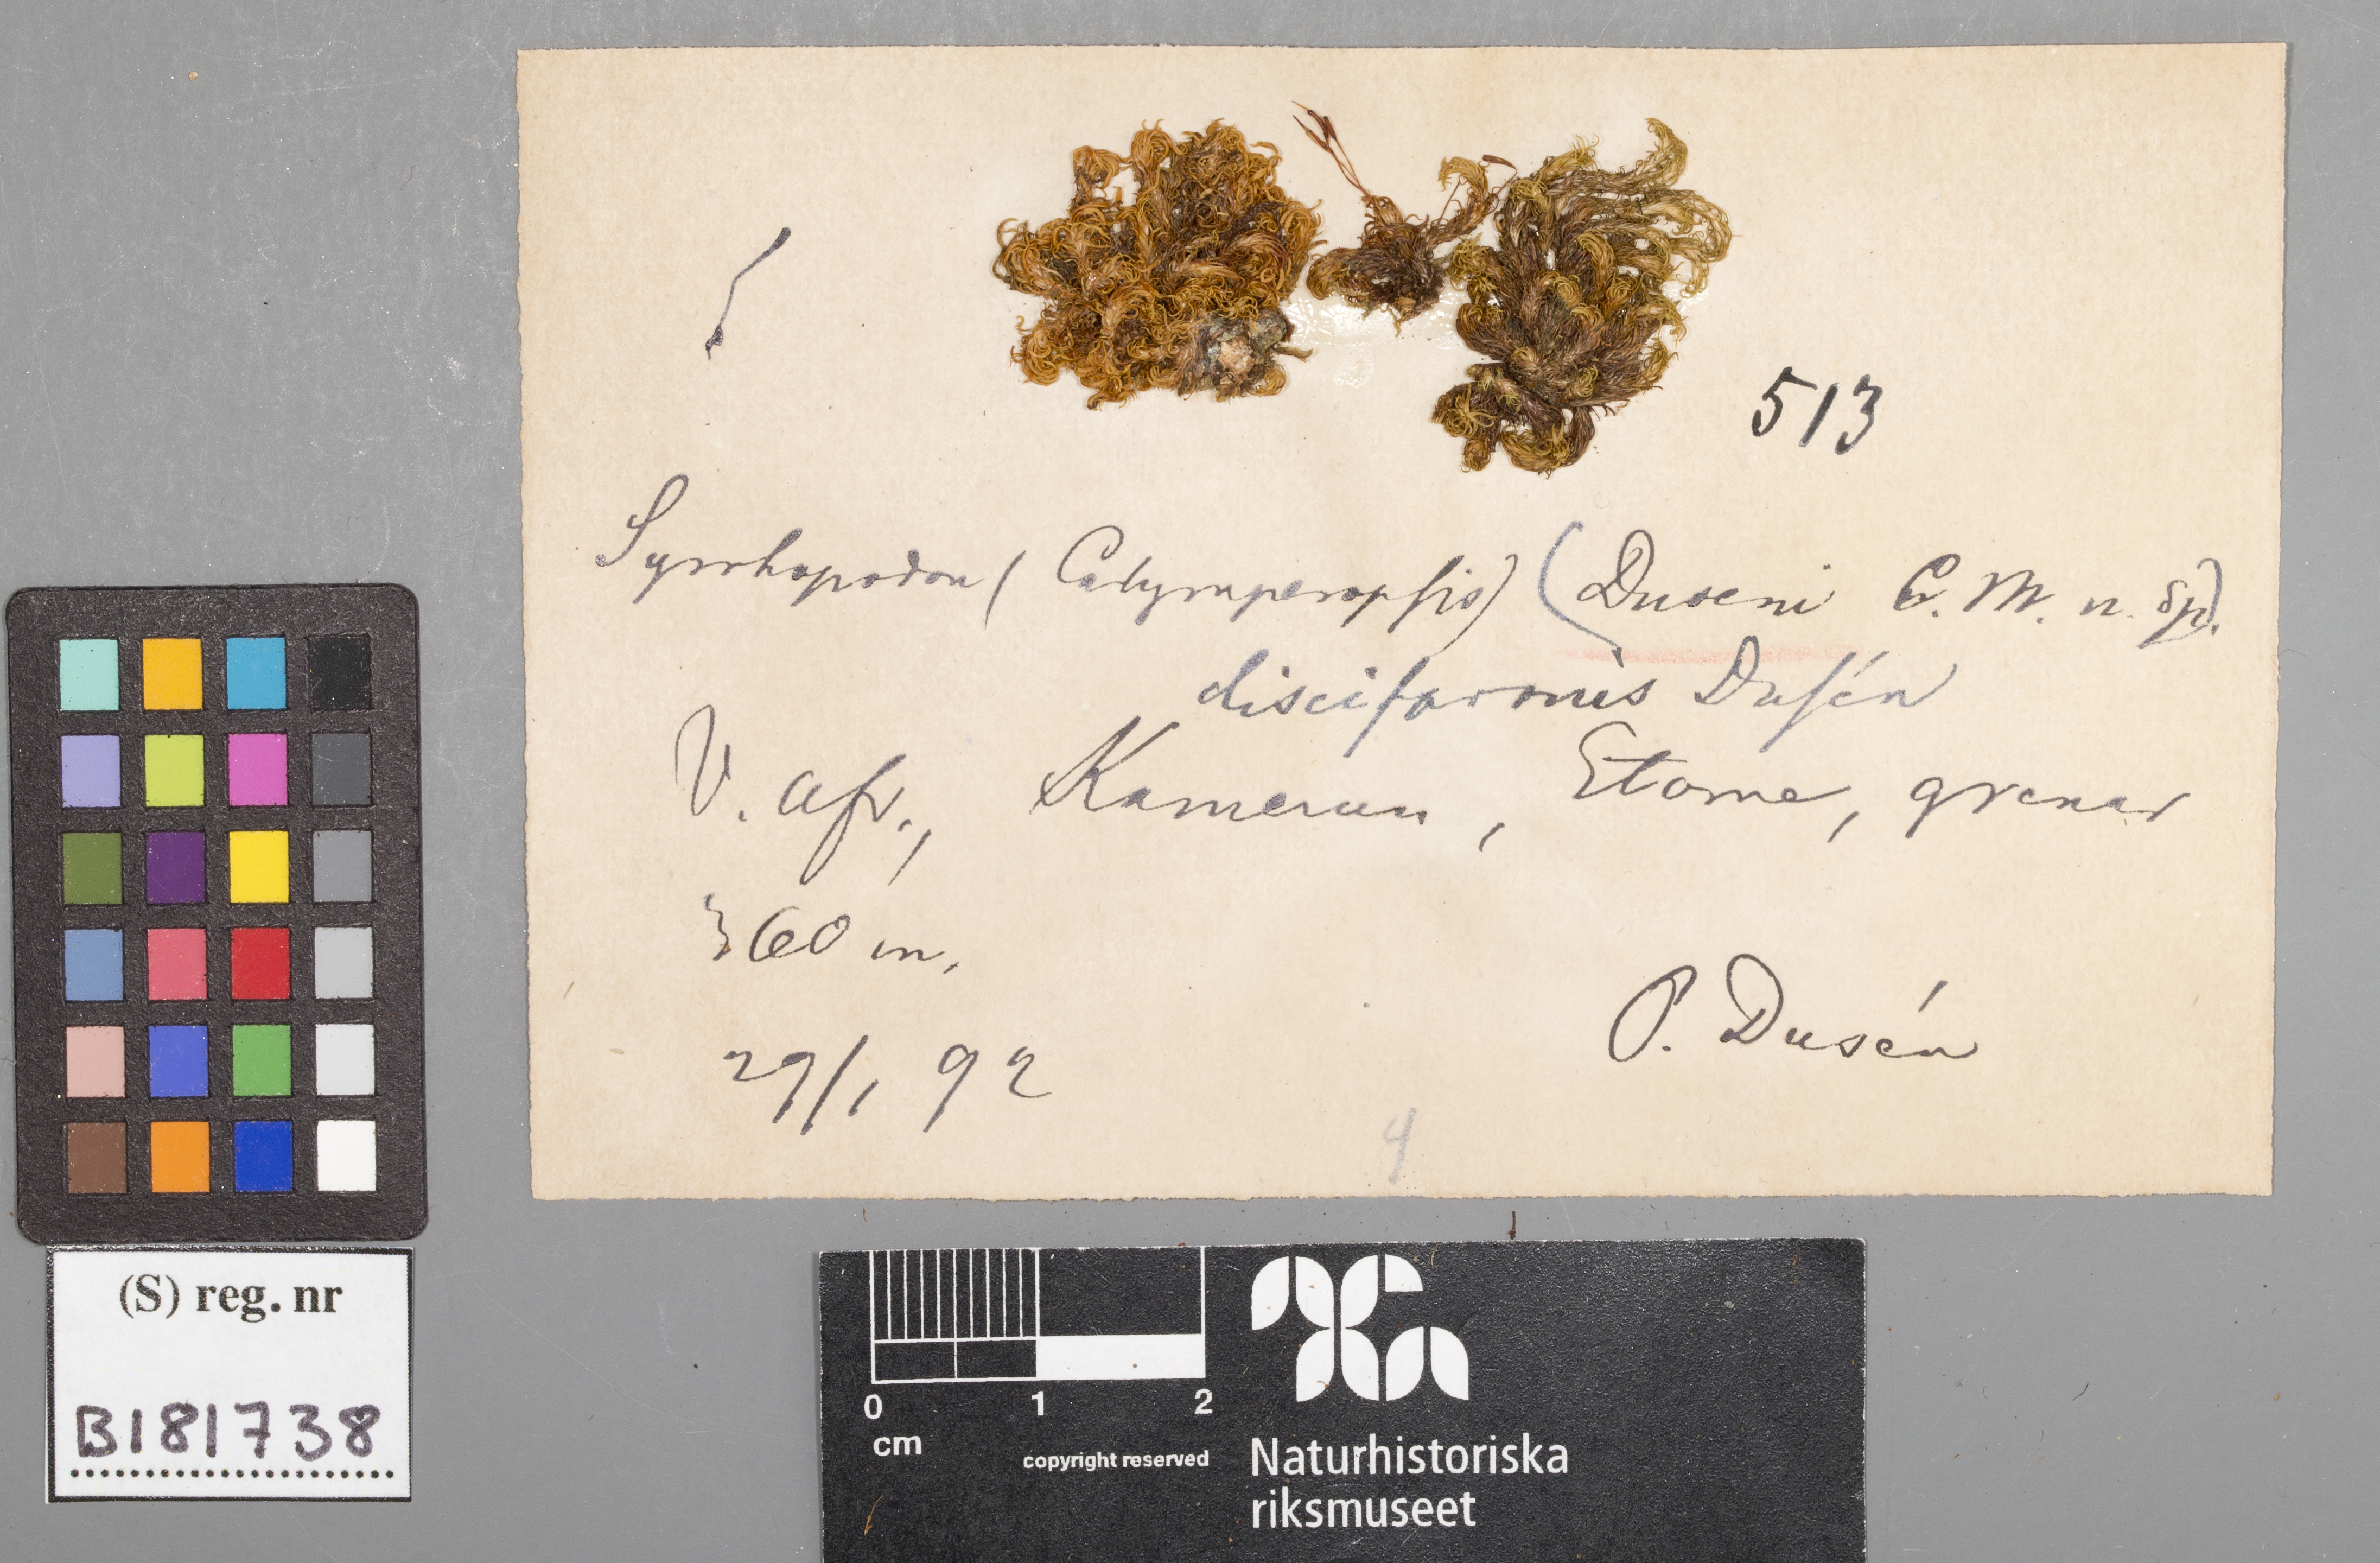 513
Syrrhopodon (Calymperopsis) (Duseni C. M. n. sp).
disciformis Dusén
V. afr., Kamerun, Etome, grenar
360 m.
P. Dusén
29/1 92
4
(S) reg. nr
B181738
0 1 2
cm
copyright reserved
Naturhistoriska
riksmuseet